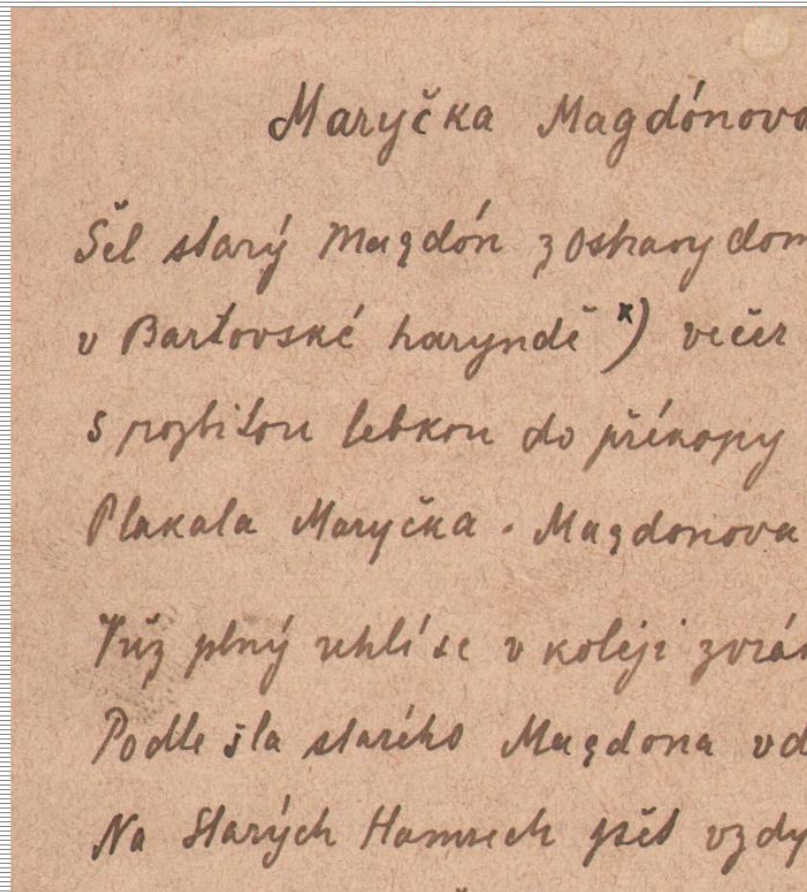 Maryčka Magdónova
Šel starý Magdón z Ostravy dom
v Bartovské haryndě x) večer
s rozbitou lebkou do příkopy
Plakala Maryčka . Magdonova
Vůz plný uhlí se v koleji zvrá
Podle šla starého Magdona vd
Na Starých Hamrech pět vzdy